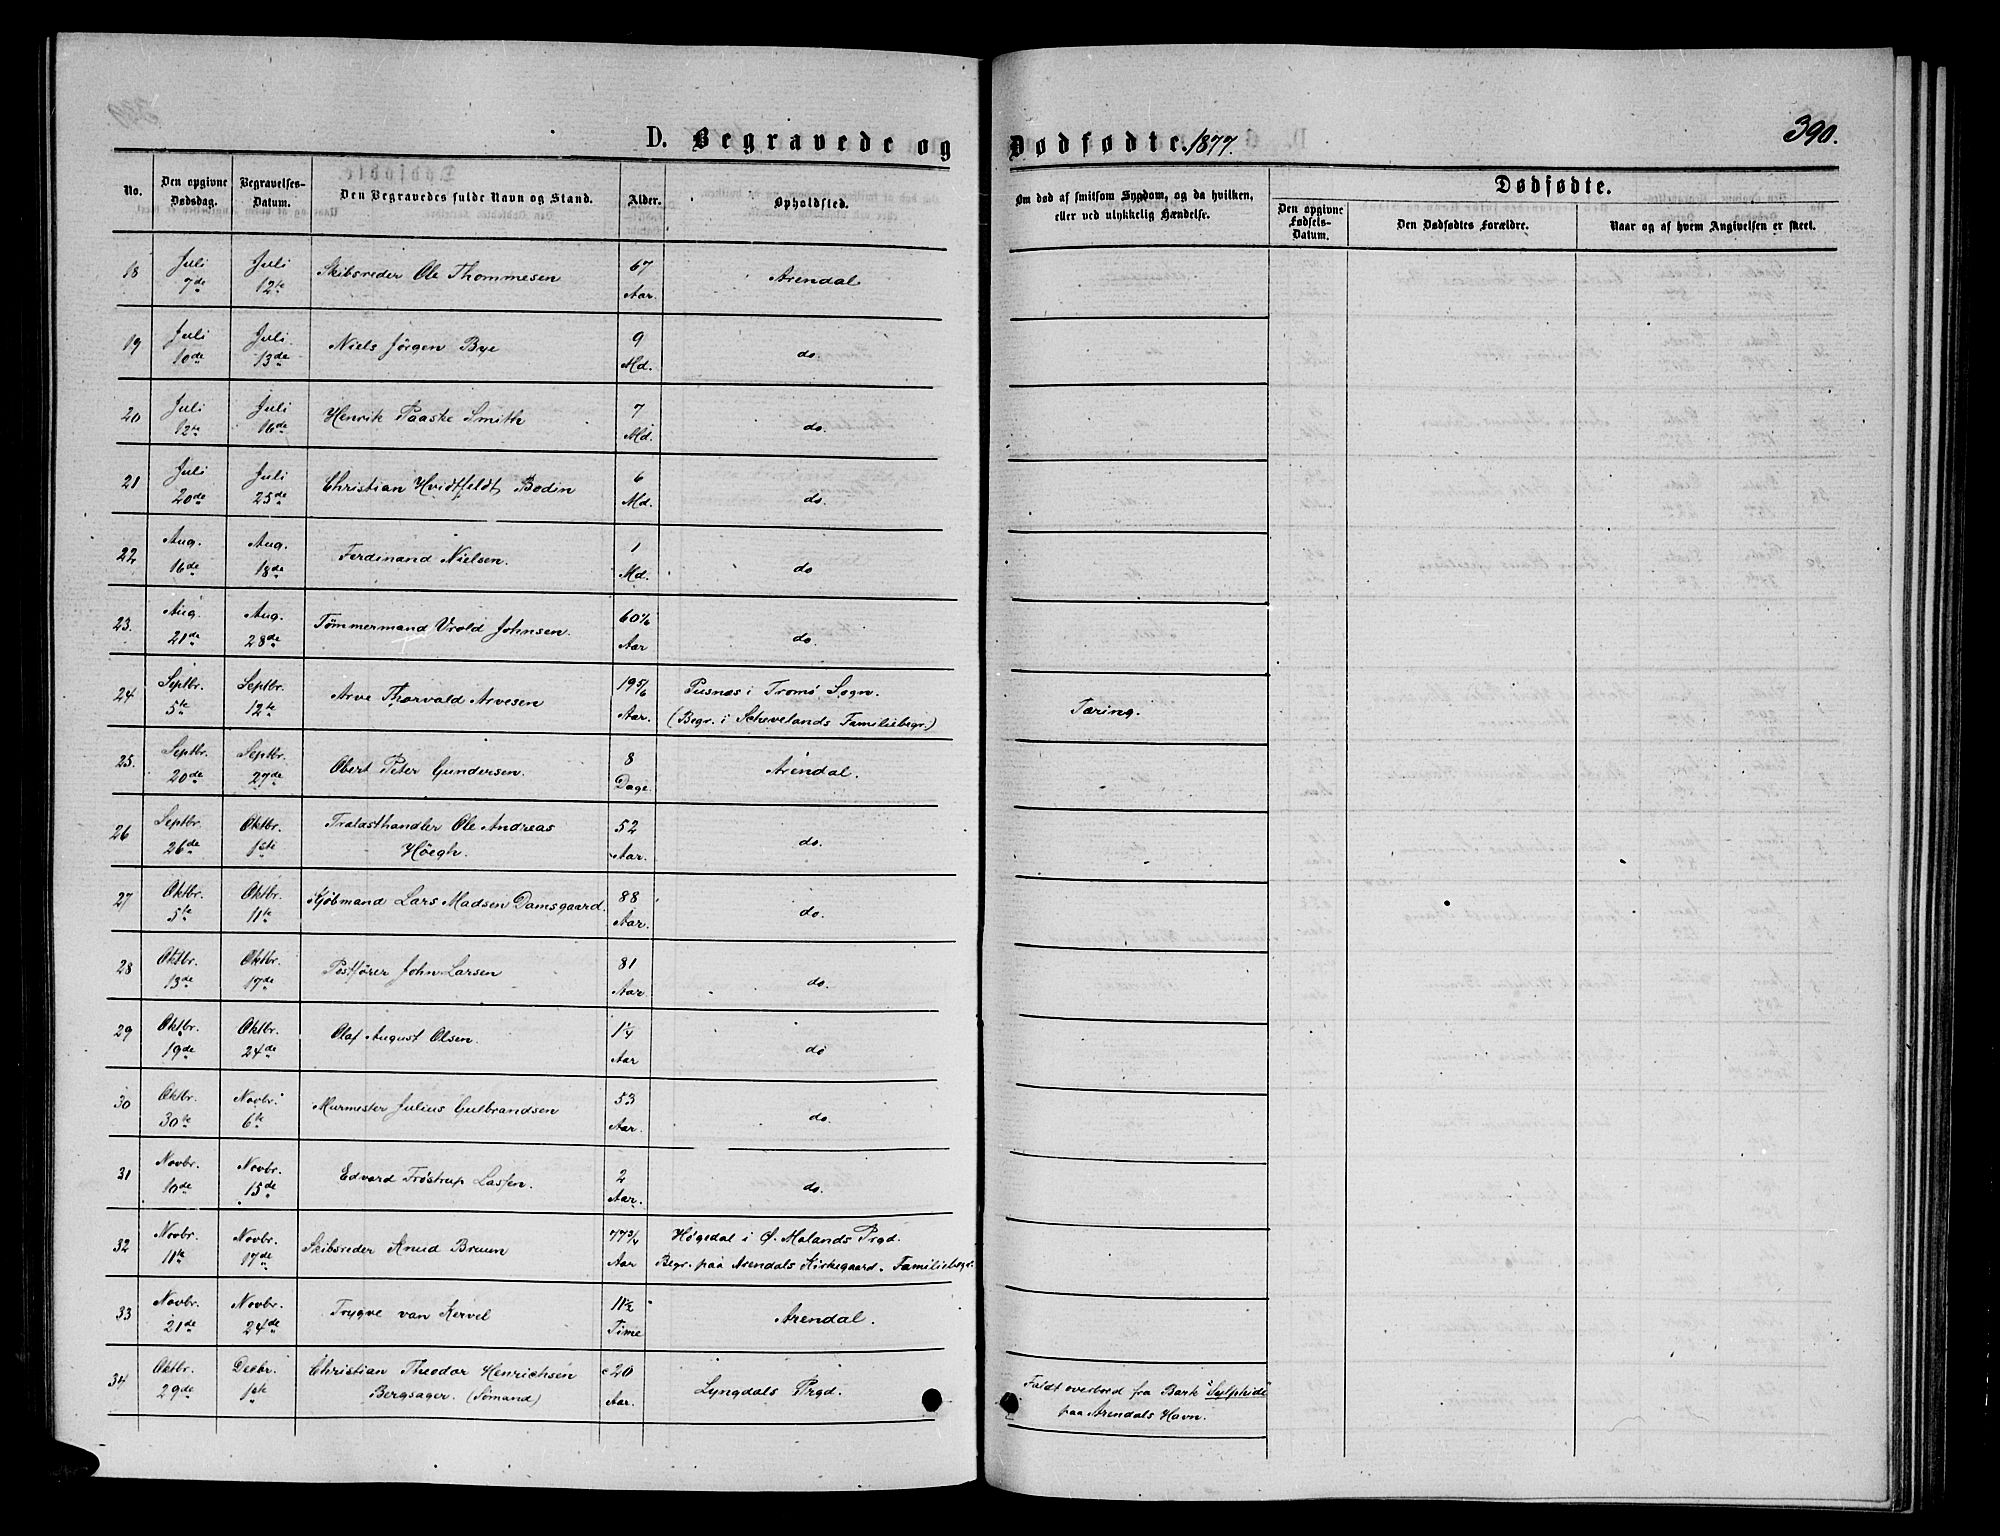 390.
D. Begravede og Dødfødte. 1877.
No. | Den opgivne Dødsdag. | Begravelses-Datum. | Den Begravedes fulde Navn og Stand. | Alder. | Opholdsted. | Om død af smitsom Sygdom, og da hvilken, eller ved ulykkelig Hændelse. | Dødfødte. | Den opgivne Fødsels-Datum. | Den Dødfødtes Forældre. | Naar og af hvem Angivelsen er skeet.
18 | Juli 7de | Juli 12te | Skibsreder Ole Thommesen | 67 Aar. | Arendal
19 | Juli 10de | Juli 13de | Niels Jörgen Bye | 9 Md. | do.
20 | Juli 12te | Juli 16de | Henrik Paaske Smith | 7 Md. | do.
21 | Juli 20de | Juli 25de | Christian Hvidtfeldt Bodin | 6 Md. | do.
22 | Aug. 16de | Aug. 18de | Ferdinand Nielsen. | 1 Md. | do
23. | Aug. 21de | Aug. 28de | Tømmermand Vrold Johnsen. | Aar | do.
24 | Septbr. 5te | Septbr. 12te | Arve Thorvald Arvesen | 19 5/6 Aar. | Pusnæs i Tromö Sogn. (Begr. i Schevelands Familiebegr.) | Tæring.
25. | Septbr. 20de | Septbr. 27de | Obert Peter Gundersen. | 8 Dage. | Arendal.
26 | Septbr. 26de | Oktbr. 1ste | Ole Andreas Höegh. | 52 Aar. | do.
27 | Oktbr. 5te | Oktbr. 11te | Kjøbmand Lars Madsen Damsgaard. | 88 Aar. | do.
28 | Oktbr. 13de | Oktbr. 17de | Postfører John Larsen | 81 Aar. | do.
29 | Oktbr. 19de | Oktbr. 24de | Olaf August Olsen. | 1 1/4 Aar | do
30 | Oktbr. 30te | Novbr. 6te | Murmester Julius Gulbrandsen | 53 Aar. | do.
31 | Novbr. 10de | Novbr. 15de | Edvard Tröstrup Lassen. | 2 Aar. | do.
32 | Novbr. 11te | Novbr. 17de | Skibsreder Knud Bruun | 77 3/4 Aar | Högedal i Ø. Molands Prgd. Begr. paa Arendals Kirkegaard. Familiebegr.
33 | Novbr. 21de | Novbr. 24de | Trygve van Kervel | 11 1/2 Time | Arendal.
34 | Oktbr. 29de | Decbr. 1ste | Christian Theodor Henrichsen Bergsager. (Sömand) | c 20 Aar. | Lyngdals Prgd. | Faldt overbord fra Bark "Sylphide" paa Arendals Havn.